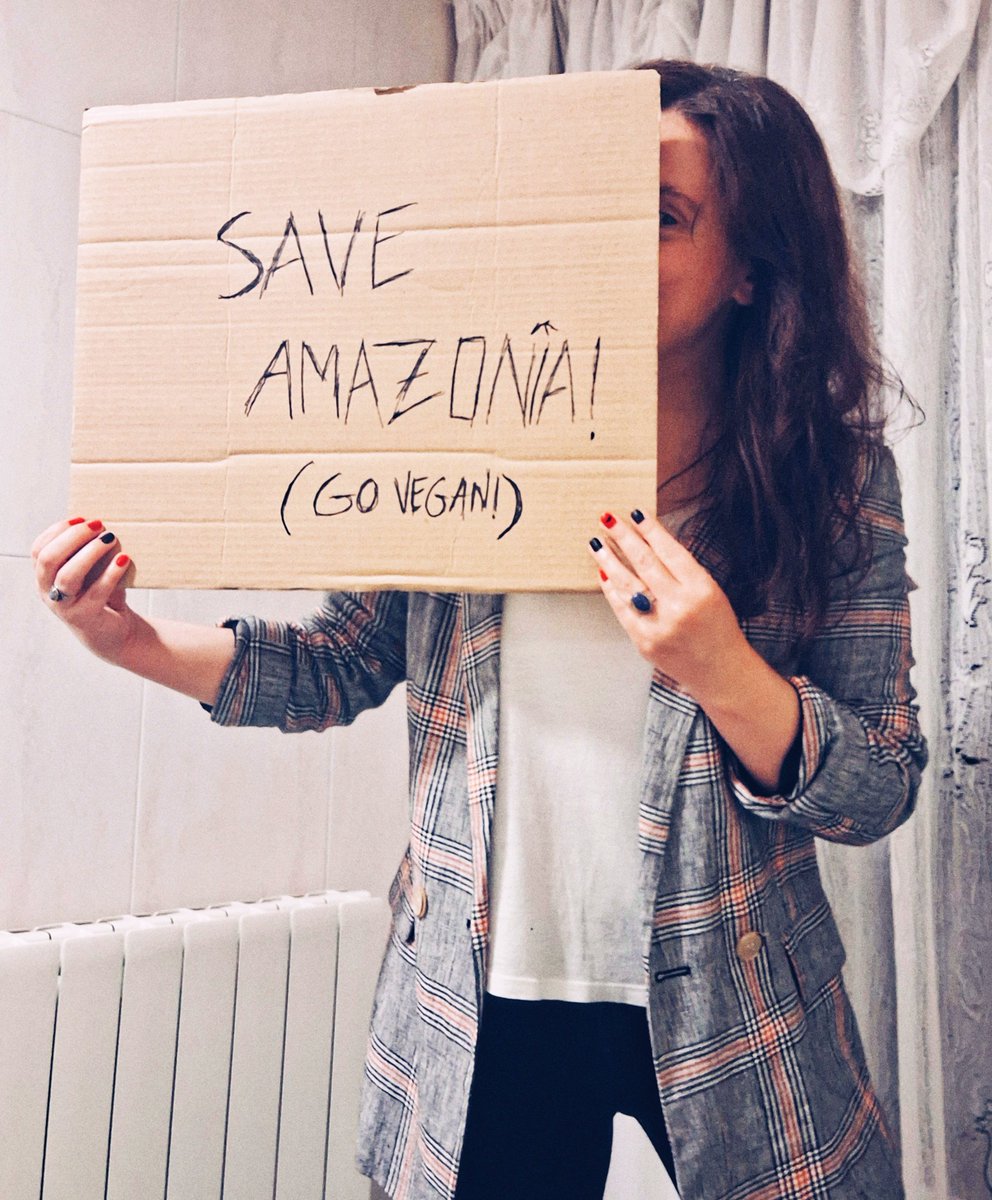 SAVE
AMAZONÎA!
(GO VEGAN!)